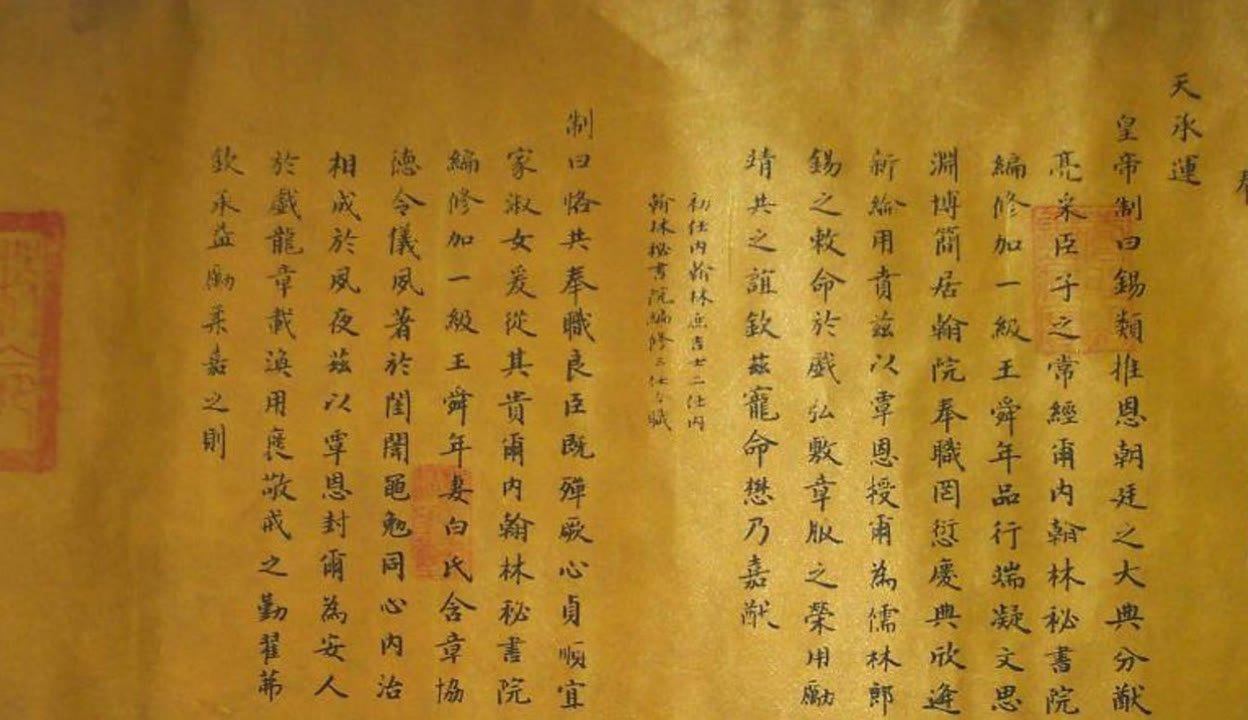 天承運
皇帝制曰錫類推恩朝廷之大典分猷
亮采臣子之常經爾內翰林秘書院
編修加一級王舜年品行端凝文思
淵博簡居翰院奉職罔愆慶典欣逢
新綸用賁茲以覃恩授爾為儒林郎
錫之敕命於戲弘敷章服之榮用勵
靖共之誼欽茲寵命懋乃嘉猷
初任內翰林庶吉士二任內
翰林秘書院編修三任今職
制曰恪共奉職良臣既殫厥心貞順宜
家淑女爰從其貴爾內翰林秘書院
編修加一級王舜年妻白氏含章協
德令儀夙著於閨闈黽勉同心內治
相成於夙夜茲以覃恩封爾為安人
於戲龍章載渙用褒敬戒之勤翟茀
欽承益勵柔嘉之則